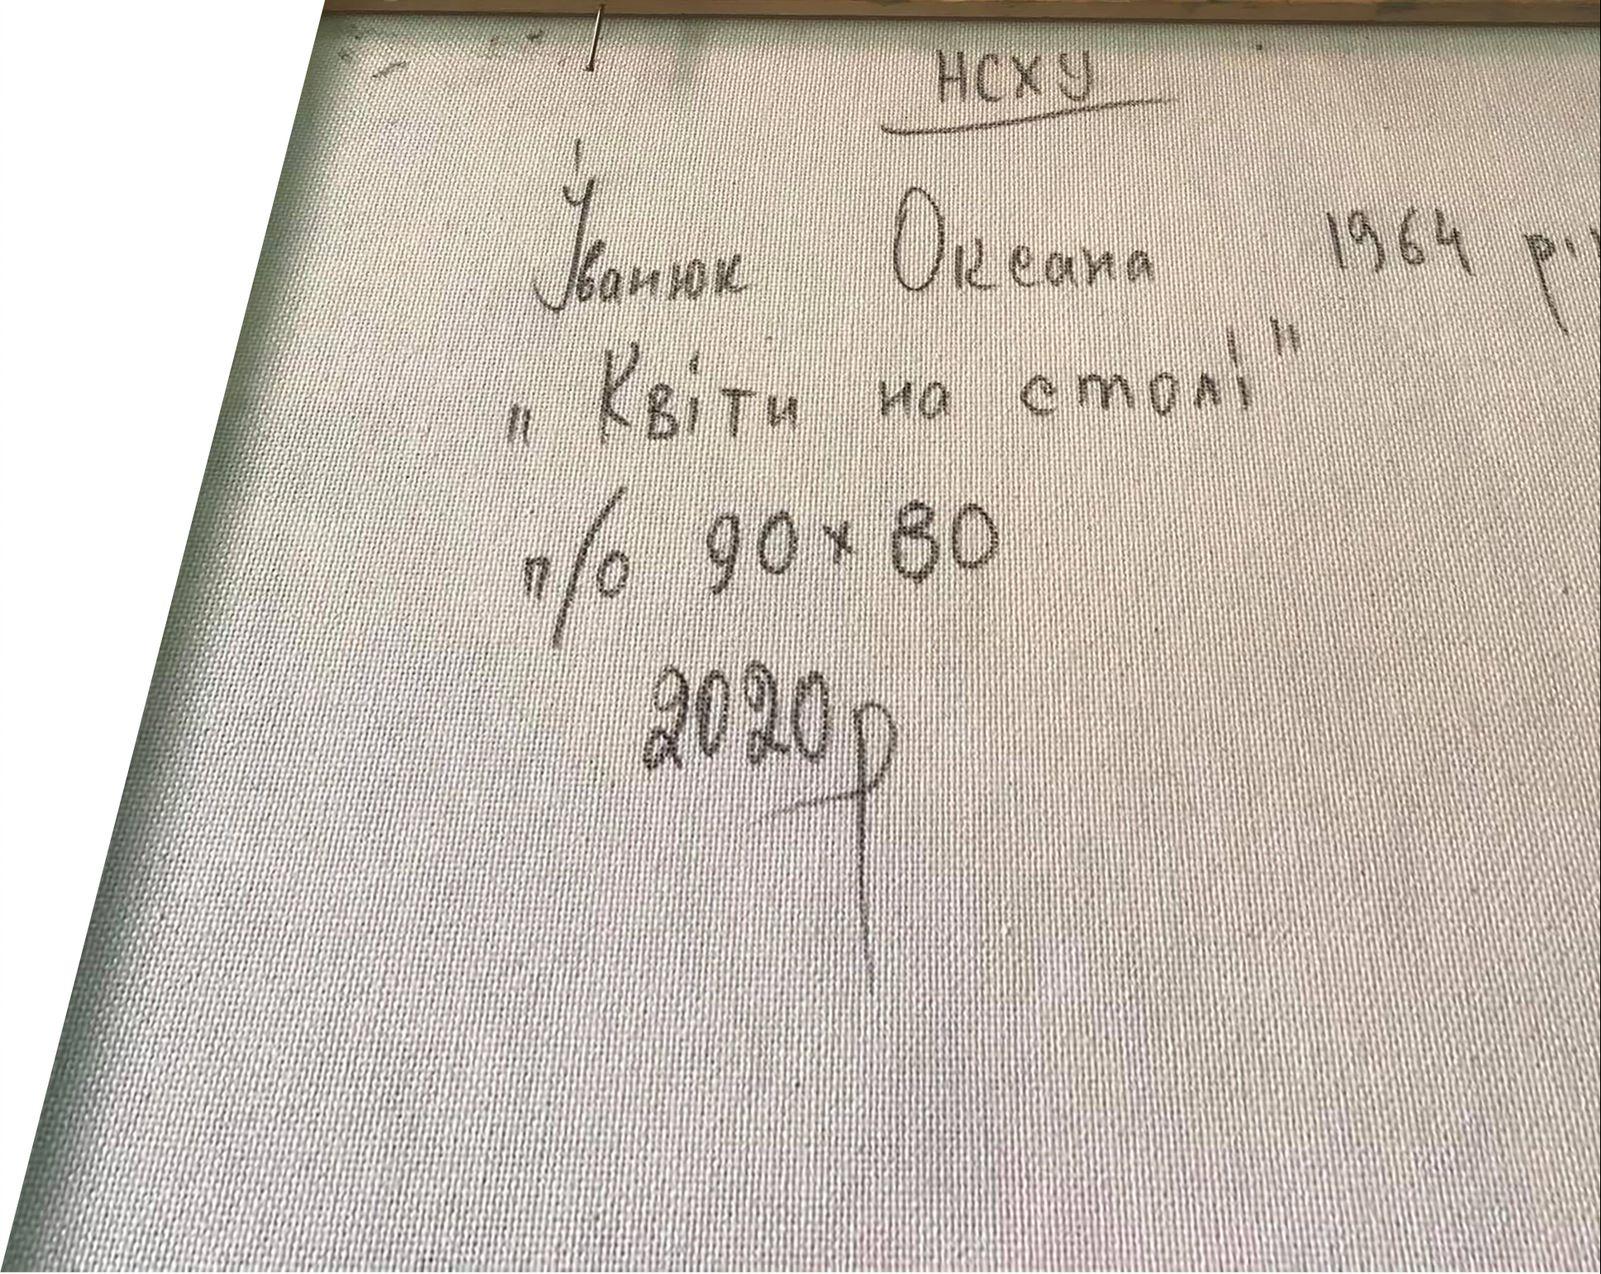 НСХУ
Іванюк Оксана 1964
"Квіти на столі"
п/о 90х80
2020р